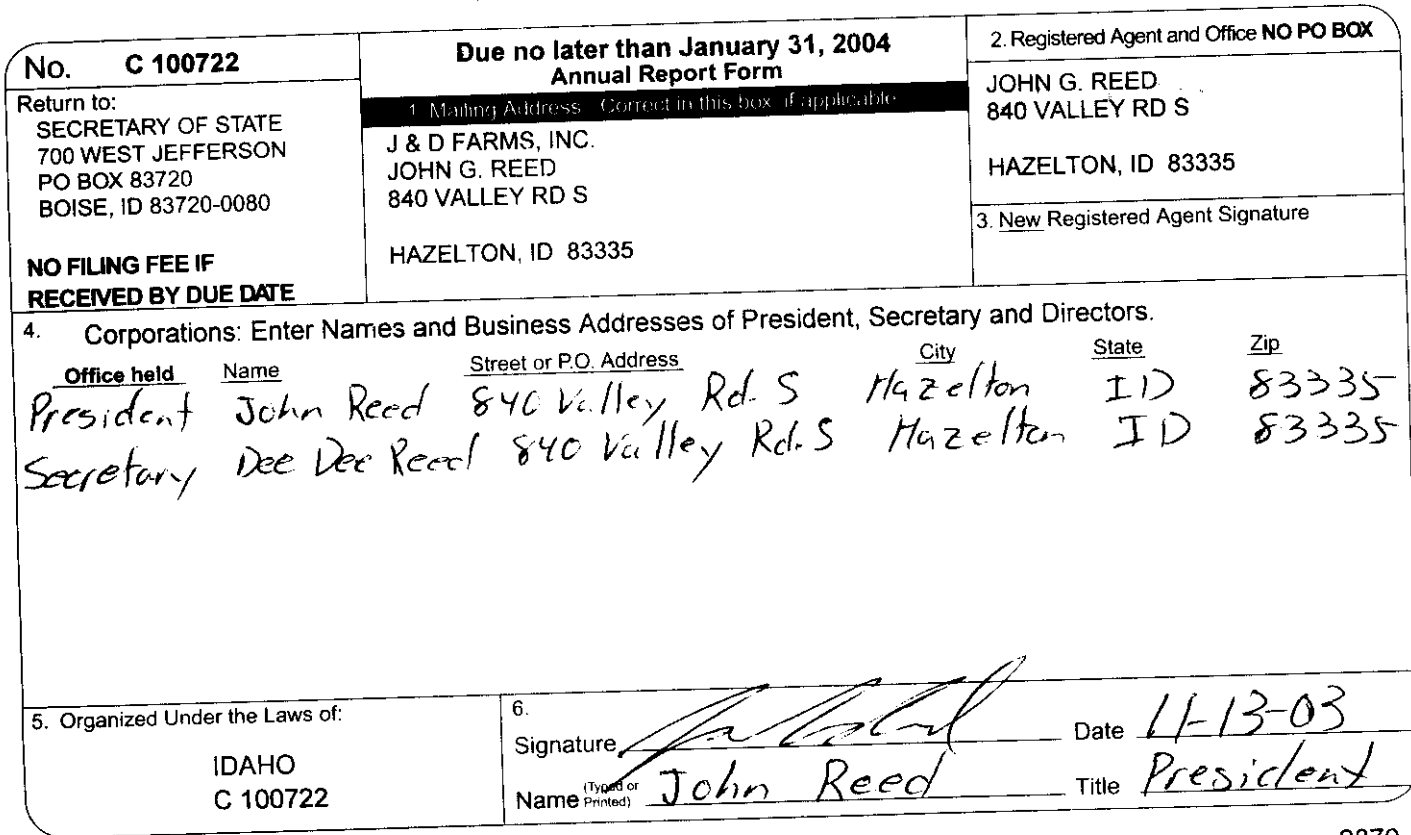 No. C 100722
Return to:
SECRETARY OF STATE
700 WEST JEFFERSON
PO BOX 83720
BOISE, ID 83720-0080
NO FILING FEE IF
RECEIVED BY DUE DATE
Due no later than January 31, 2004
Annual Report Form
1. Mailing Address Correct in this box if applicable
J & D FARMS, INC.
JOHN G. REED
840 VALLEY RD S
HAZELTON, ID 83335
2. Registered Agent and Office NO PO BOX
JOHN G. REED
840 VALLEY RD S
HAZELTON, ID 83335
3. New Registered Agent Signature
4. Corporations: Enter Names and Business Addresses of President, Secretary and Directors.
Office held Name Street or P.O. Address City State Zip
President John Reed 840 Valley Rd. S Hazelton ID 83335
Secretary Dee Dee Reed 840 Valley Rd. S Hazelton ID 83335
5. Organized Under the Laws of:
IDAHO
C 100722
6.
Signature Date 11-13-03
Name (Typed or Printed) John Reed Title President